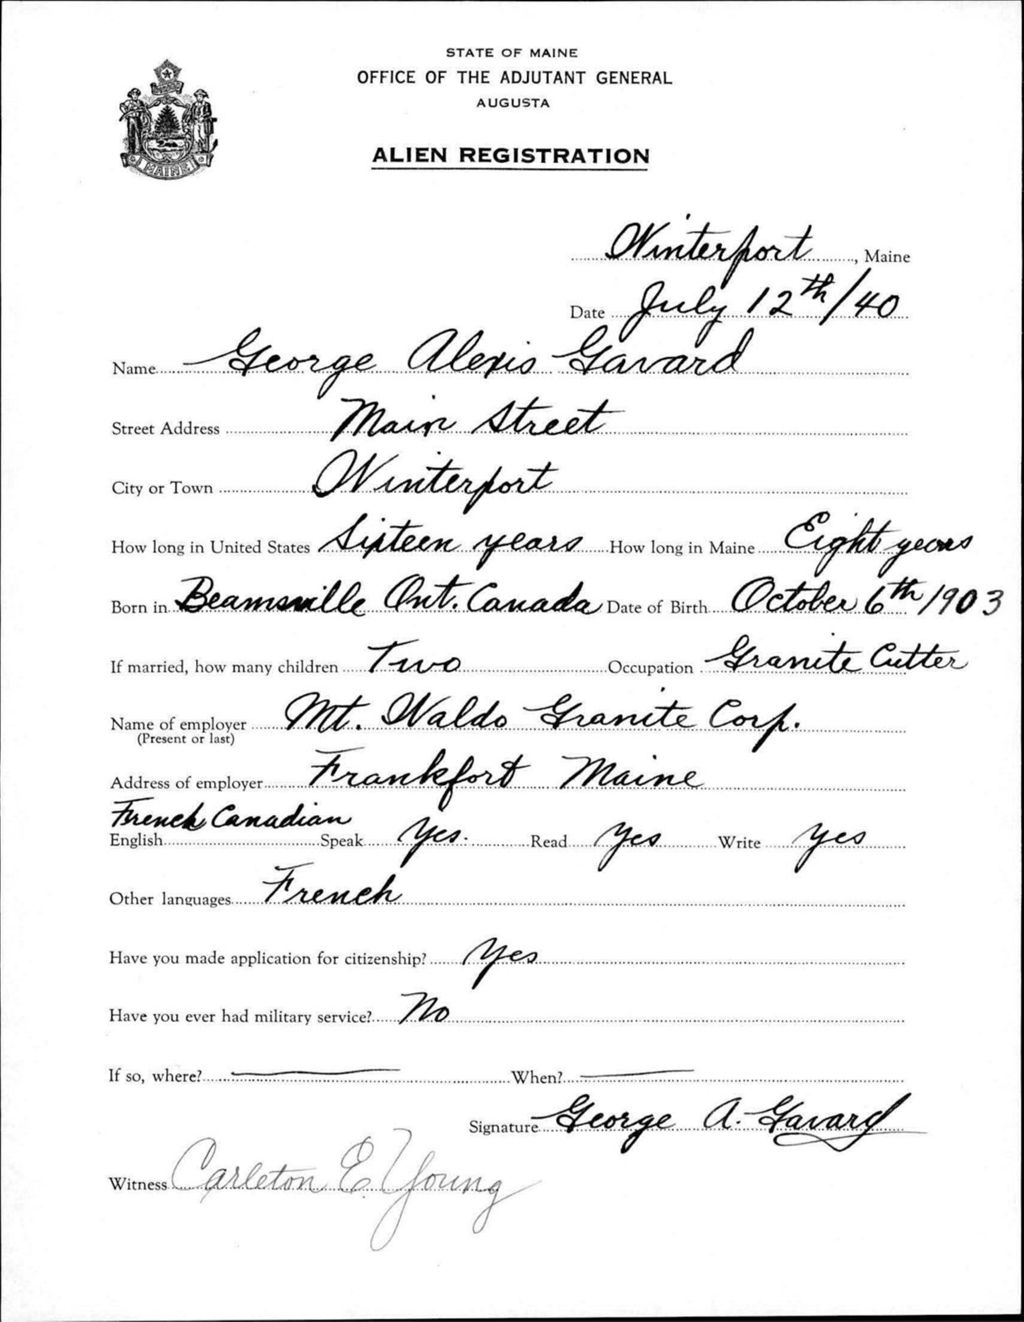 STATE OF MAINE
OFFICE OF THE ADJUTANT GENERAL
AUGUSTA
ALIEN REGISTRATION
MAINE
Winterport, Maine
Date July 12th/40
Name George Alexis Gavard
Street Address Main Street
City or Town Winterport
How long in United States Sixteen years How long in Maine Eight years
Born in Beamsville Ont. Canada Date of Birth October 6th/1903
If married, how many children Two Occupation Granite Cutter
Name of employer Mt. Waldo Granite Corp.
(Present or last)
Address of employer Frankfort Maine
French Canadian
English Speak Yes. Read Yes Write Yes
Other languages French
Have you made application for citizenship? Yes
Have you ever had military service? No
If so, where? When?
Signature George A. Gavard
Witness Carleton E. Young